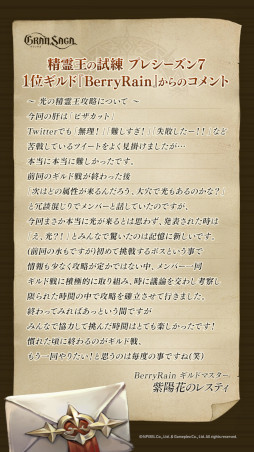 GRAN SAGA
精霊王の試練 プレシーズン7
1位ギルド『BerryRain』からのコメント
～ 光の精霊王攻略について ～
今回の肝は「ピザカット」
Twitterでも「無理！」「難しすぎ！」「失敗したー！！」など
苦戦しているツイートをよく見掛けましたが…
本当に本当に難しかったです。
前回のギルド戦が終わった後
「次はどの属性が来るんだろう、大穴で光もあるのかな？」
と冗談混じりでメンバーと話していたのですが、
今回まさか本当に光が来るとは思わず、発表された時は
「え、光？！」とみんなで驚いたのは記憶に新しいです。
(前回の水もですが)初めて挑戦するボスという事で
情報も少なく攻略が定かではない中、メンバー一同
ギルド戦に積極的に取り組み、時に議論を交わし考察し
限られた時間の中で攻略を確立させて行きました。
終わってみればあっという間ですが
みんなで協力して挑んだ時間はとても楽しかったです！
慣れた頃に終わるのがギルド戦、
もう一回やりたい！と思うのは毎度の事ですね(笑)
BerryRain ギルドマスター
紫陽花のレスティ